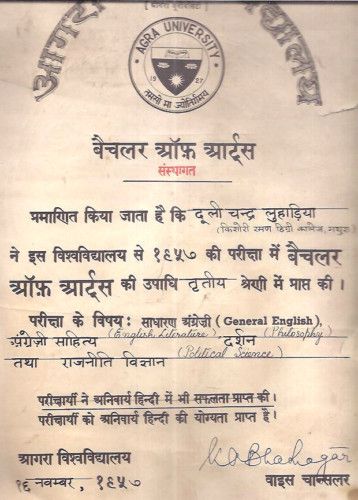 आगरा विश्वविद्यालय
AGRA UNIVERSITY
1927
तमसो मा ज्योतिर्गमय
बैचलर ऑफ़ आर्ट्स
संस्थागत
प्रमाणित किया जाता है कि दूली चन्द्र लुहाड़िया
(किशोरी रमण डिग्री कालेज, मथुरा)
ने इस विश्वविद्यालय से १९५७ की परीक्षा में बैचलर
ऑफ़ आर्ट्स की उपाधि तृतीय श्रेणी में प्राप्त की।
परीक्षा के विषय: साधारण अंग्रेजी (General English),
अंग्रेज़ी साहित्य (English Literature), दर्शन (Philosophy)
तथा राजनीति विज्ञान (Political Science)
परीक्षार्थी ने अनिवार्य हिन्दी में भी सफलता प्राप्त की।
परीक्षार्थी को अनिवार्य हिन्दी की योग्यता प्राप्त है।
आगरा विश्वविद्यालय
१६ नवम्बर, १९५७ वाइस चान्सलर